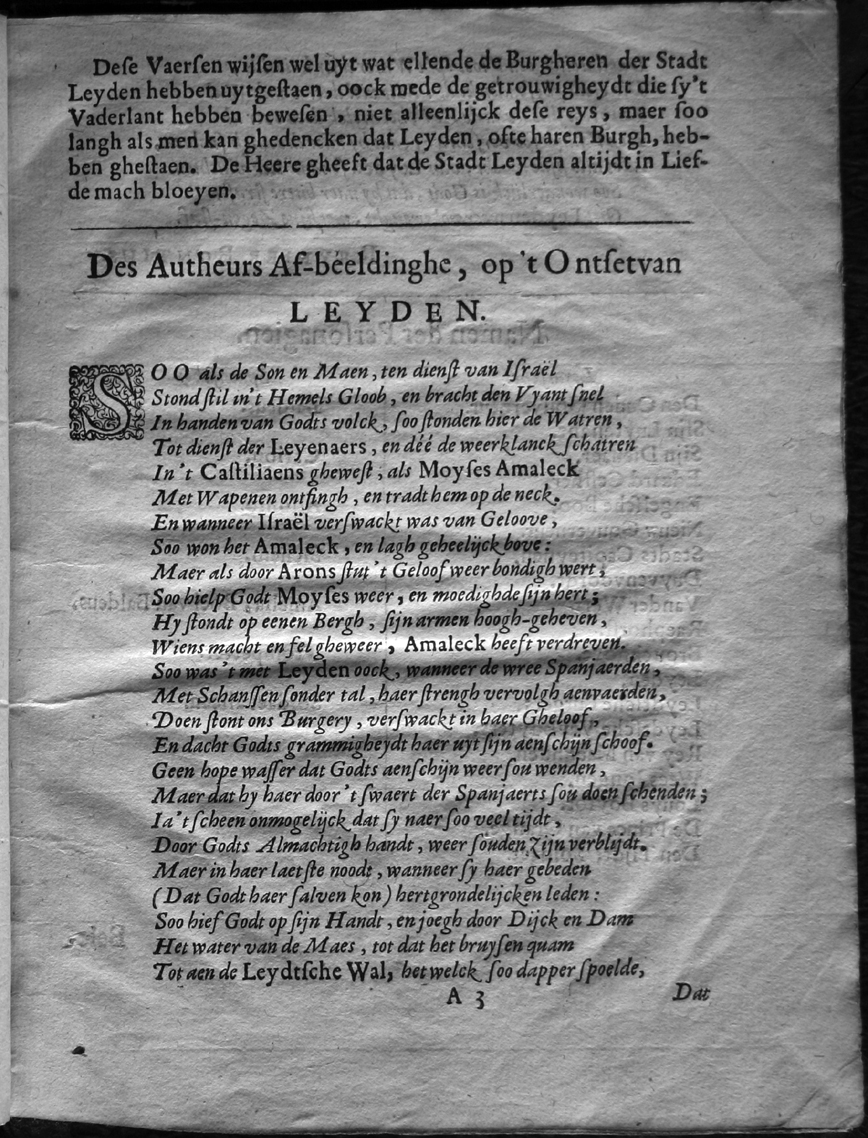 Deſe Vaerſen wijſen wel uyt wat ellende de Burgheren der Stadt
Leyden hebben uytgeſtaen, oock mede de getrouwigheydt die ſy't
Vaderlant hebben beweſen, niet alleenlijck deſe reys, maer ſoo
langh als men kan ghedencken dat Leyden, ofte haren Burgh, heb-
ben gheſtaen. De Heere gheeft dat de Stadt Leyden altijdt in Lief-
de mach bloeyen.
Des Autheurs Af-beeldinghe, op 't Ontſetvan
LEYDEN.
SOO als de Son en Maen, ten dienſt van Iſraël
Stond ſtil in't Hemels Gloob, en bracht den Vyant ſnel
In handen van Godts volck, ſoo ſtonden hier de Watren,
Tot dienſt der Leyenaers, en déé de weerklanck ſchatren
In 't Caſtiliaens gheweſt, als Moyſes Amaleck
Met Wapenen ontfingh, en tradt hem op de neck.
En wanneer Iſraël verſwackt was van Geloove,
Soo won het Amaleck, en lagh geheelijck bove:
Maer als door Arons ſtut 't Geloof weer bondigh wert,
Soo hielp Godt Moyſes weer, en moedighde ſijn hert;
Hy ſtondt op eenen Bergh, ſijn armen hoogh-geheven,
Wiens macht en fel gheweer, Amaleck heeft verdreven.
Soo was 't met Leyden oock, wanneer de wree Spanjaerden,
Met Schanſſen ſonder tal, haer ſtrengh vervolgh aenvaerden,
Doen ſtont ons Burgery, verſwackt in haer Gheloof,
En dacht Godts grammigheydt haer uyt ſijn aenſchijn ſchoof.
Geen hope waſſer dat Godts aenſchijn weer ſou wenden,
Maer dat hy haer door 't ſwaert der Spanjaerts ſou doen ſchenden;
Ia 't ſcheen onmogelijck dat ſy naer ſoo veel tijdt,
Door Godts Almachtigh handt, weer ſouden zijn verblijdt.
Maer in haer laetſte noodt, wanneer ſy haer gebeden
(Dat Godt haer ſalven kon) hertgrondelijcken leden:
Soo hief Godt op ſijn Handt, en joegh door Dijck en Dam
Het water van de Maes, tot dat het bruyſen quam
Tot aen de Leydtſche Wal, hetwelck ſoo dapper ſpoelde,
A 3 Dat